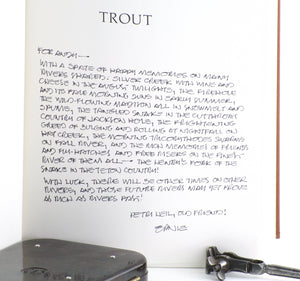 TROUT
FOR ANDY—
WITH A SPATE OF HAPPY MEMORIES ON MANY
RIVERS SHARED: SILVER CREEK WITH WINE AND
CHEESE IN THE AUGUST TWILIGHTS, THE FIREHOLE
AND ITS FREE MORNING SUNS IN EARLY SUMMER,
THE WILD FLOWING MADISON ALL IN SNOWMELT AND
SPUME, THE TANGLED SNAKE IN THE CUTTHROAT
COUNTRY OF JACKSON HOLE, THE FRIGHTENING
GREED OF BULGING AND ROLLING AT NIGHTFALL ON
HAT CREEK, THE MORNING TRICORYTHODES SWARMS
ON FALL RIVER, AND THE MEN MEMORIES OF FRIENDS
AND PM-HATCHES AND FREE RISERS ON THE FINEST
RIVER OF THEM ALL— THE HENRY'S FORK OF THE
SNAKE IN THE TETON COUNTRY!
WITH LUCK, THERE WILL BE OTHER TIMES ON OTHER
RIVERS, AND THOSE FUTURE RIVERS MAY YET PROVE
AS RICH AS RIVERS PAST!
PETRI HEIL, OLD FRIEND!
ERNIE